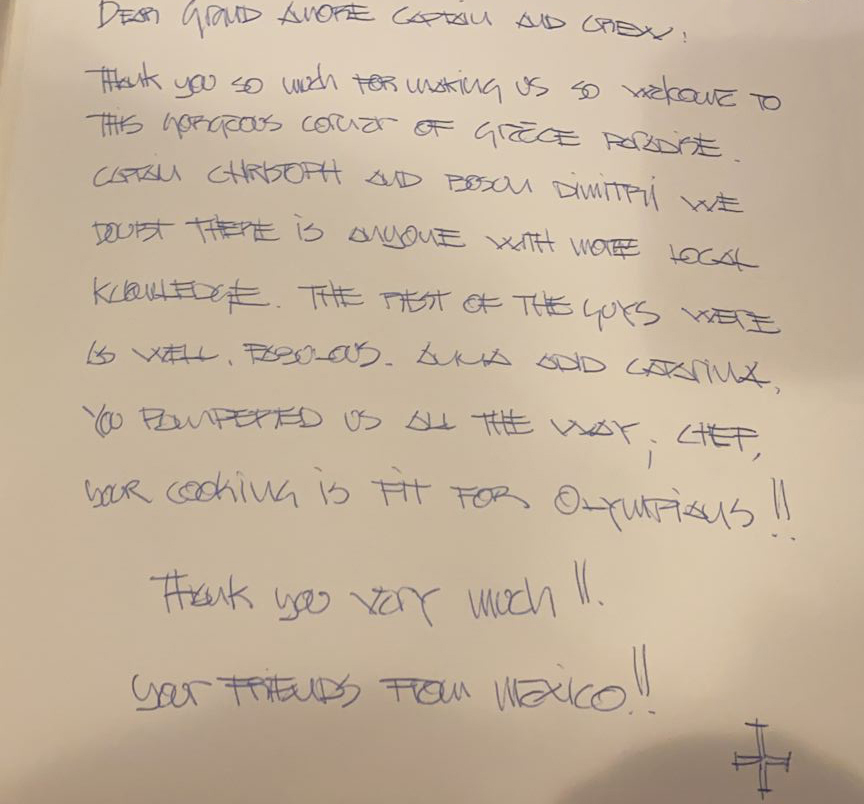 Dear Grand Amore Captain and Crew:
Thank you so much for making us so welcome to
this gorgeous corner of Greece Paradise.
Captain Christoph and Bosun Dimitri we
doubt there is anyone with more local
knowledge. The rest of the guys were
as well, fabolous. and Catarina,
you pampered us all the way; Chef,
your cooking is fit for Olympians!!
Thank you very much!!.
Your friends from Mexico!!